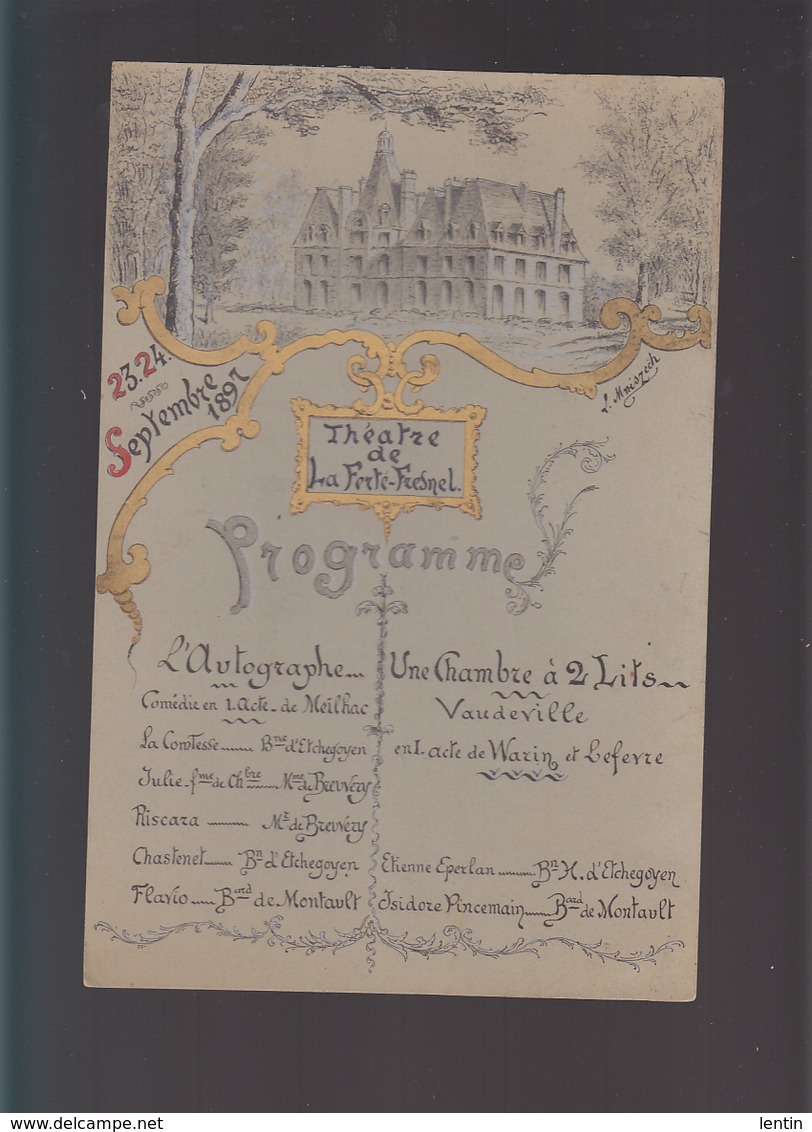 23.24.
Septembre
1897
L. Mniszech
Théatre
de
La Ferté-Fresnel.
Programme
L'Autographe
Comédie en 1. Acte de Meilhac
La Comtesse Bne d'Etchegoyen
Julie fme de Chbre Mme de Brewery
Riscara Mr de Brewery
Chastenet Bn d'Etchegoyen
Flavio Bard de Montault
Une Chambre à 2 Lits
Vaudeville
en 1. acte de Warin et Lefevre
Etienne Eperlan Bn H. d'Etchegoyen
Isidore Pincemain Bard de Montault
www.delcampe.net
lentin